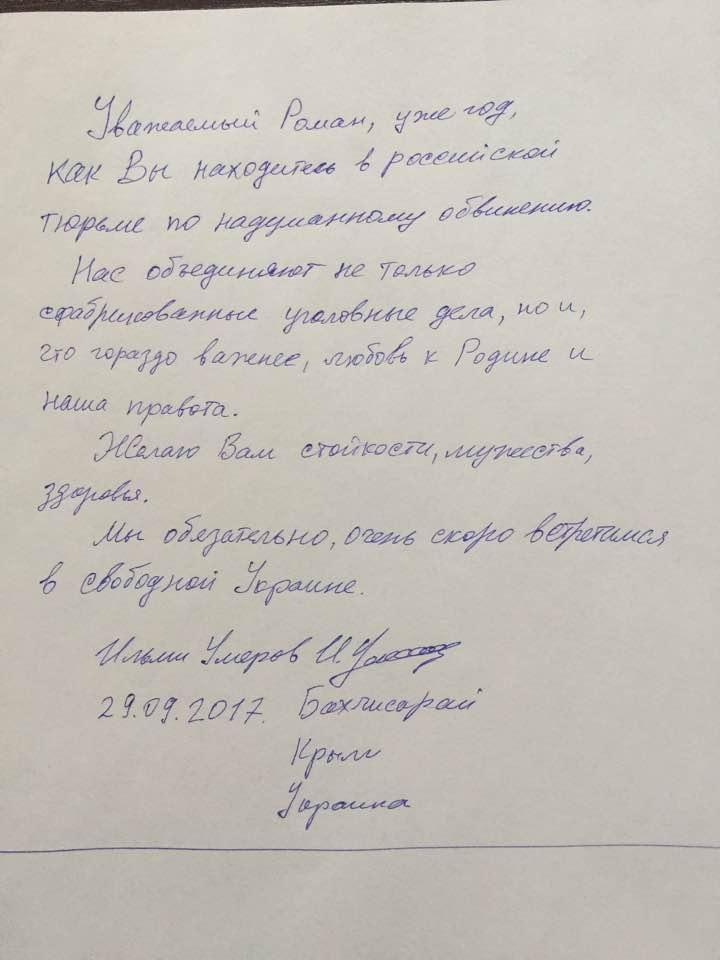 Уважаемый Роман, уже год,
как Вы находитесь в российской
тюрьме по надуманному обвинению.
Нас объединяют не только
сфабрикованные уголовные дела, но и,
что гораздо важнее, любовь к Родине и
наша правота.
Желаю Вам стойкости, мужества,
здоровья.
Мы обязательно, очень скоро встретимся
в свободной Украине.
Ильми Умеров И
29.09.2017. Бахчисарай
Крым
Украина